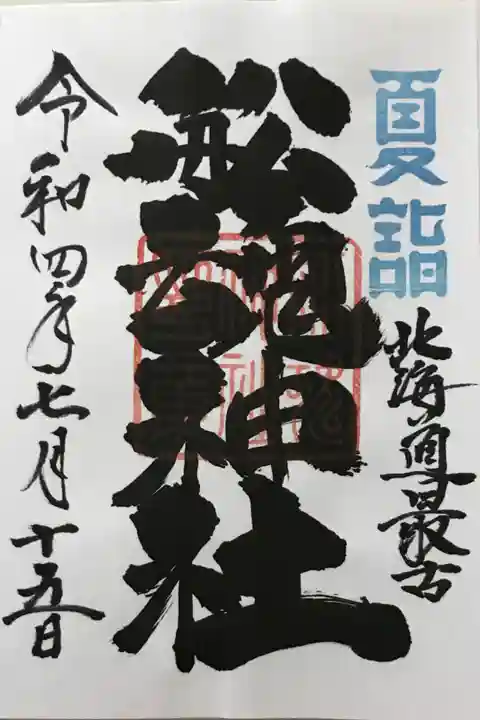 夏詣
北海道最古
船魂神社
令和四年七月十五日